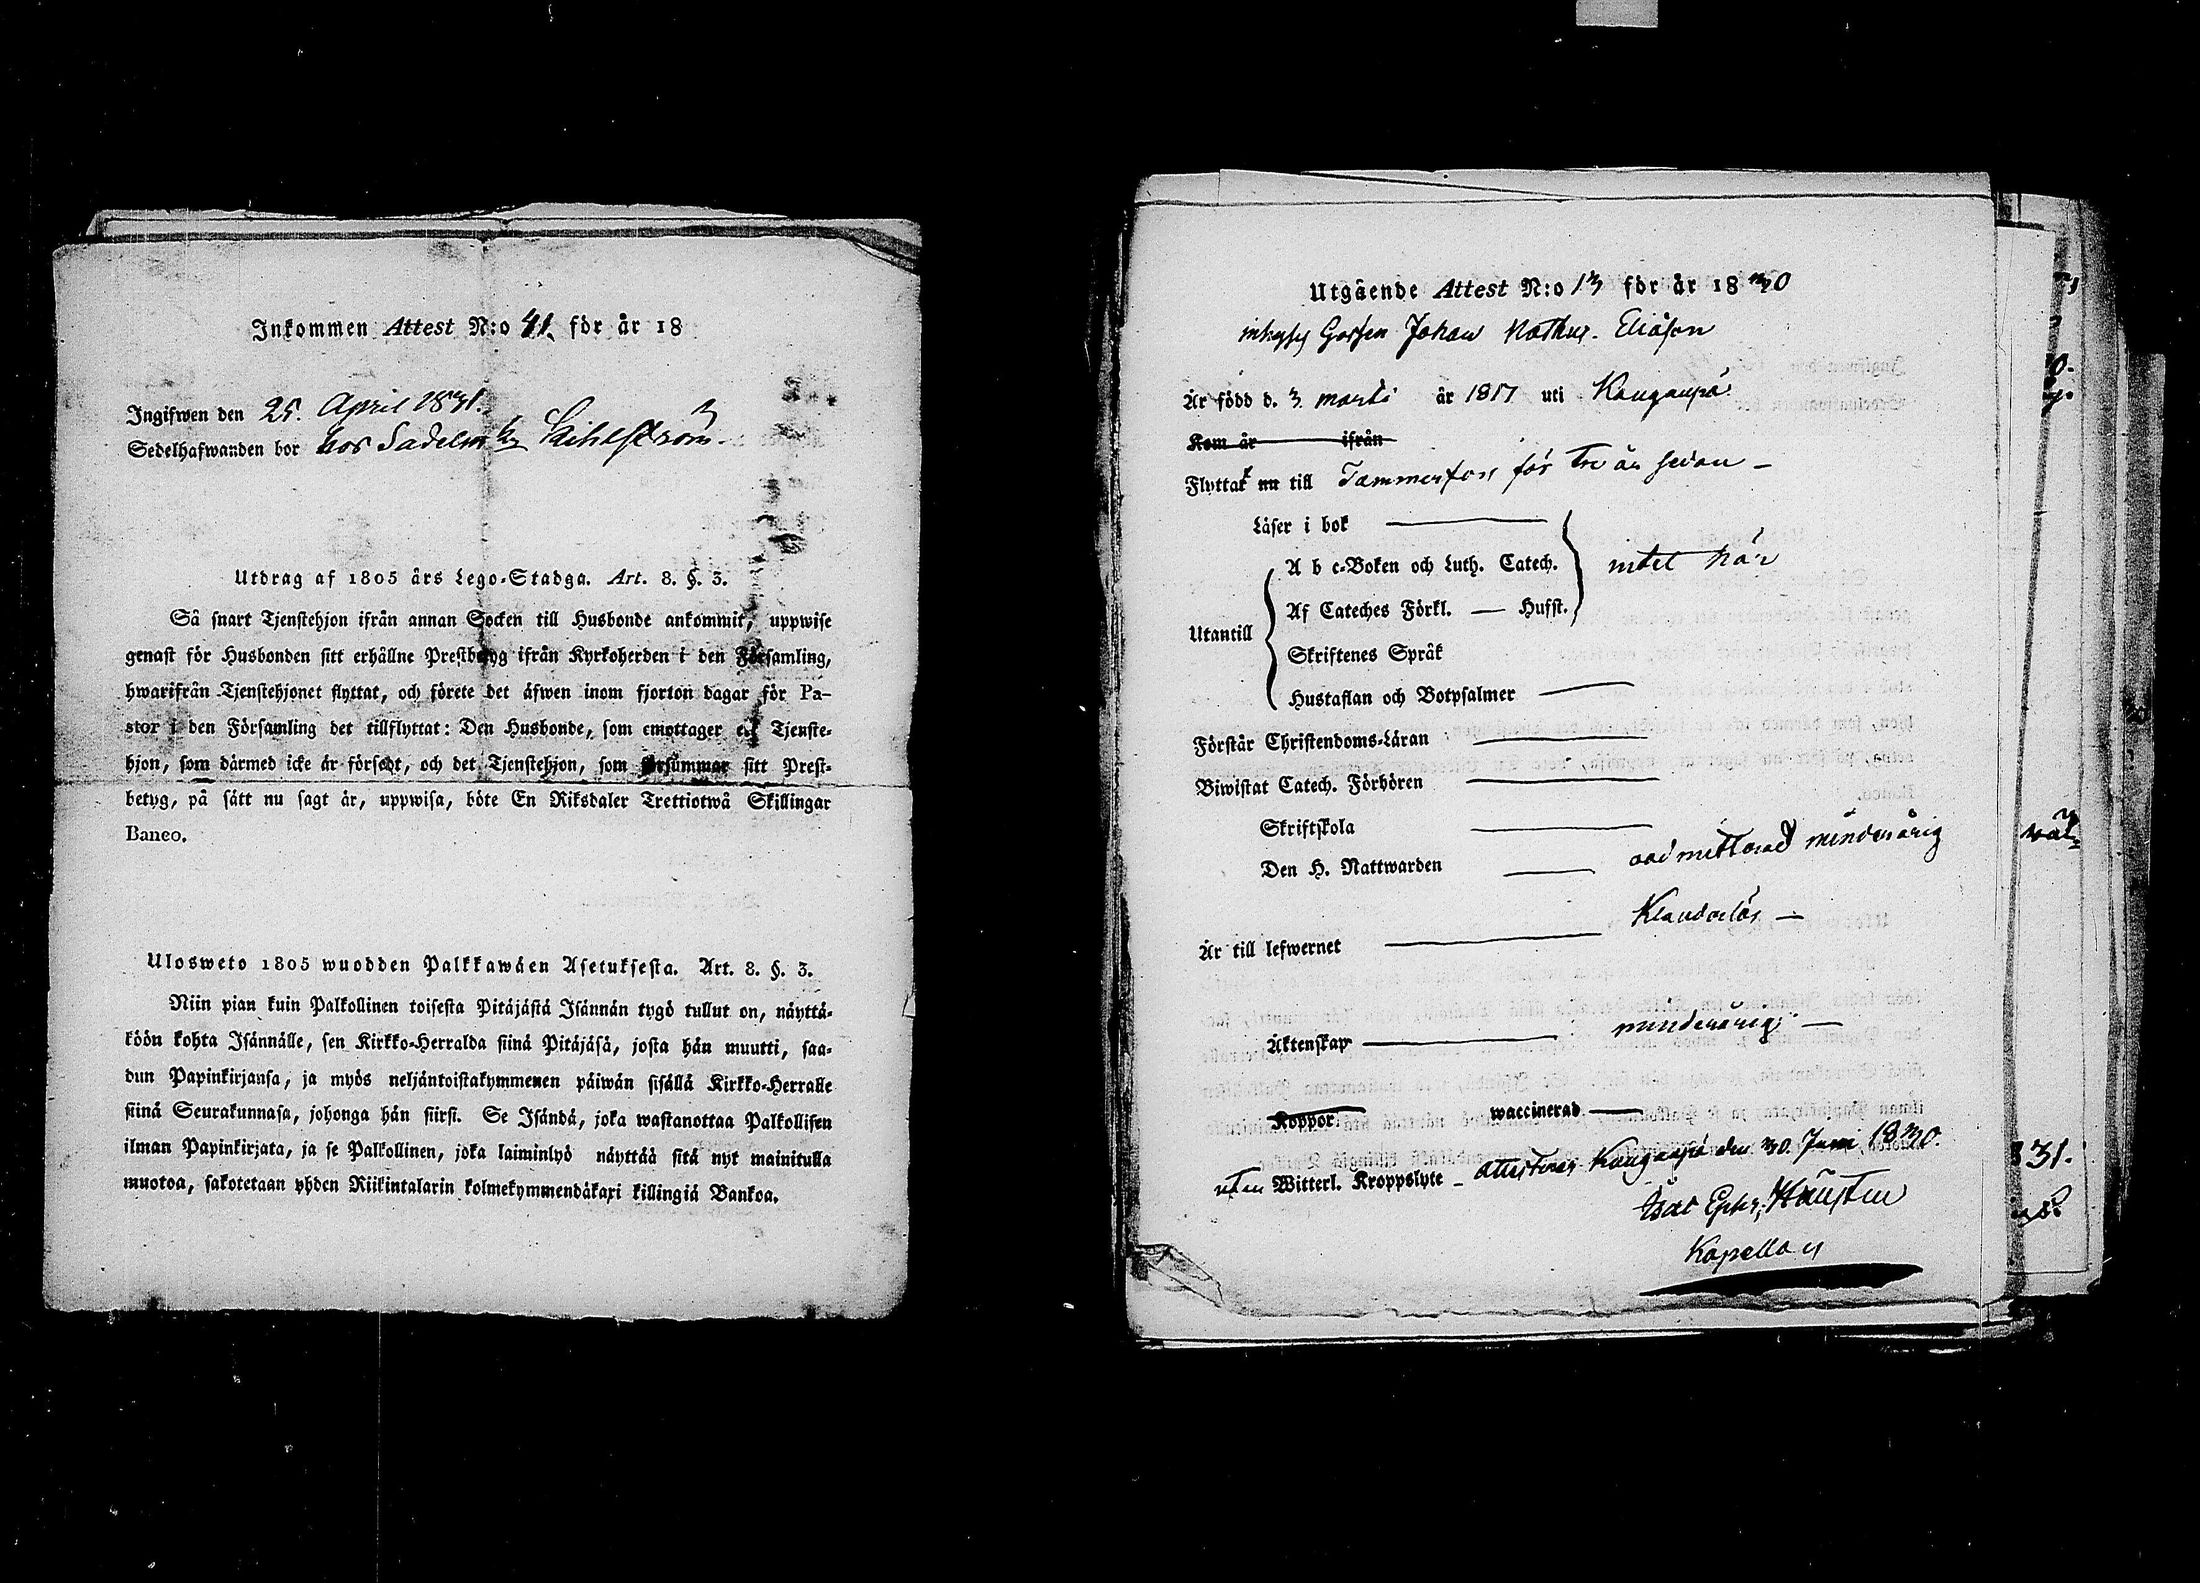 Inkommen Attest N:o 41. för år 18
Ingifwen den 25. April 1831.
Sedelhafwanden bor hos Sadelm
Utdrag af 1805 års Lego-Stadga. Art. 8. §. 3.
Så snart Tjenstehjon ifrån annan Socken till Husbonde ankommit, uppwise
genast för Husbonden sitt erhållne Prestbetyg ifrån Kyrkoherden i den Församling,
hwarifrån Tjenstehjonet flyttat, och förete det äfwen inom fjorton dagar för Pa-
stor i den Församling det tillflyttat: Den Husbonde, som emottager ett Tjenste-
hjon, som därmed icke är försedt, och det Tjenstehjon, som försummar sitt Prest-
betyg, på sätt nu sagt är, uppwisa, böte En Riksdaler Trettiotwå Skillingar
Banco.
Ulosweto 1805 wuodden Palkkawäen Asetuksesta. Art. 8. §. 3.
Niin pian kuin Palkollinen toisesta Pitäjästä Isännän tygö tullut on, näyttä-
köön kohta Isännälle, sen Kirkko-Herralda siinä Pitäjäsä, josta hän muutti, saa-
dun Papinkirjansa, ja myös neljäntoistakymmenen päiwän sisällä Kirkko-Herralle
siinä Seurakunnasa, johonga hän siirsi. Se Isändä, joka wastanottaa Palkollisen
ilman Papinkirjata, ja se Palkollinen, joka laiminlyö näyttää sitä nyt mainitulla
muotoa, sakotetaan yhden Riikintalarin kolmekymmendäkaxi killingiä Bankoa.
Utgående Attest N:o 13 för år 1830
Johan Eliasson
Är född d. 3 martii år 1817 uti Kangasniemi
Kom år ifrån
Flyttat nu till Tammerfors för tre år sedan
Läser i bok
A b c-Boken och Luth. Catech. intet här
Af Cateches Förkl. Husst.
Utantill
Skriftenes Språk
Hustaflan och Botpsalmer
Förstår Christendoms-Läran
Biwistat Catech. Förhören
Skriftskola
Den H. Nattwarden oadmitterad minderårig
Klanderlös
Är till lefwernet
Äktenskap minderårig
Koppor waccinerad
utan Witterl. Kroppslyte attesteras den 30. Juni 1830.
Kapellan